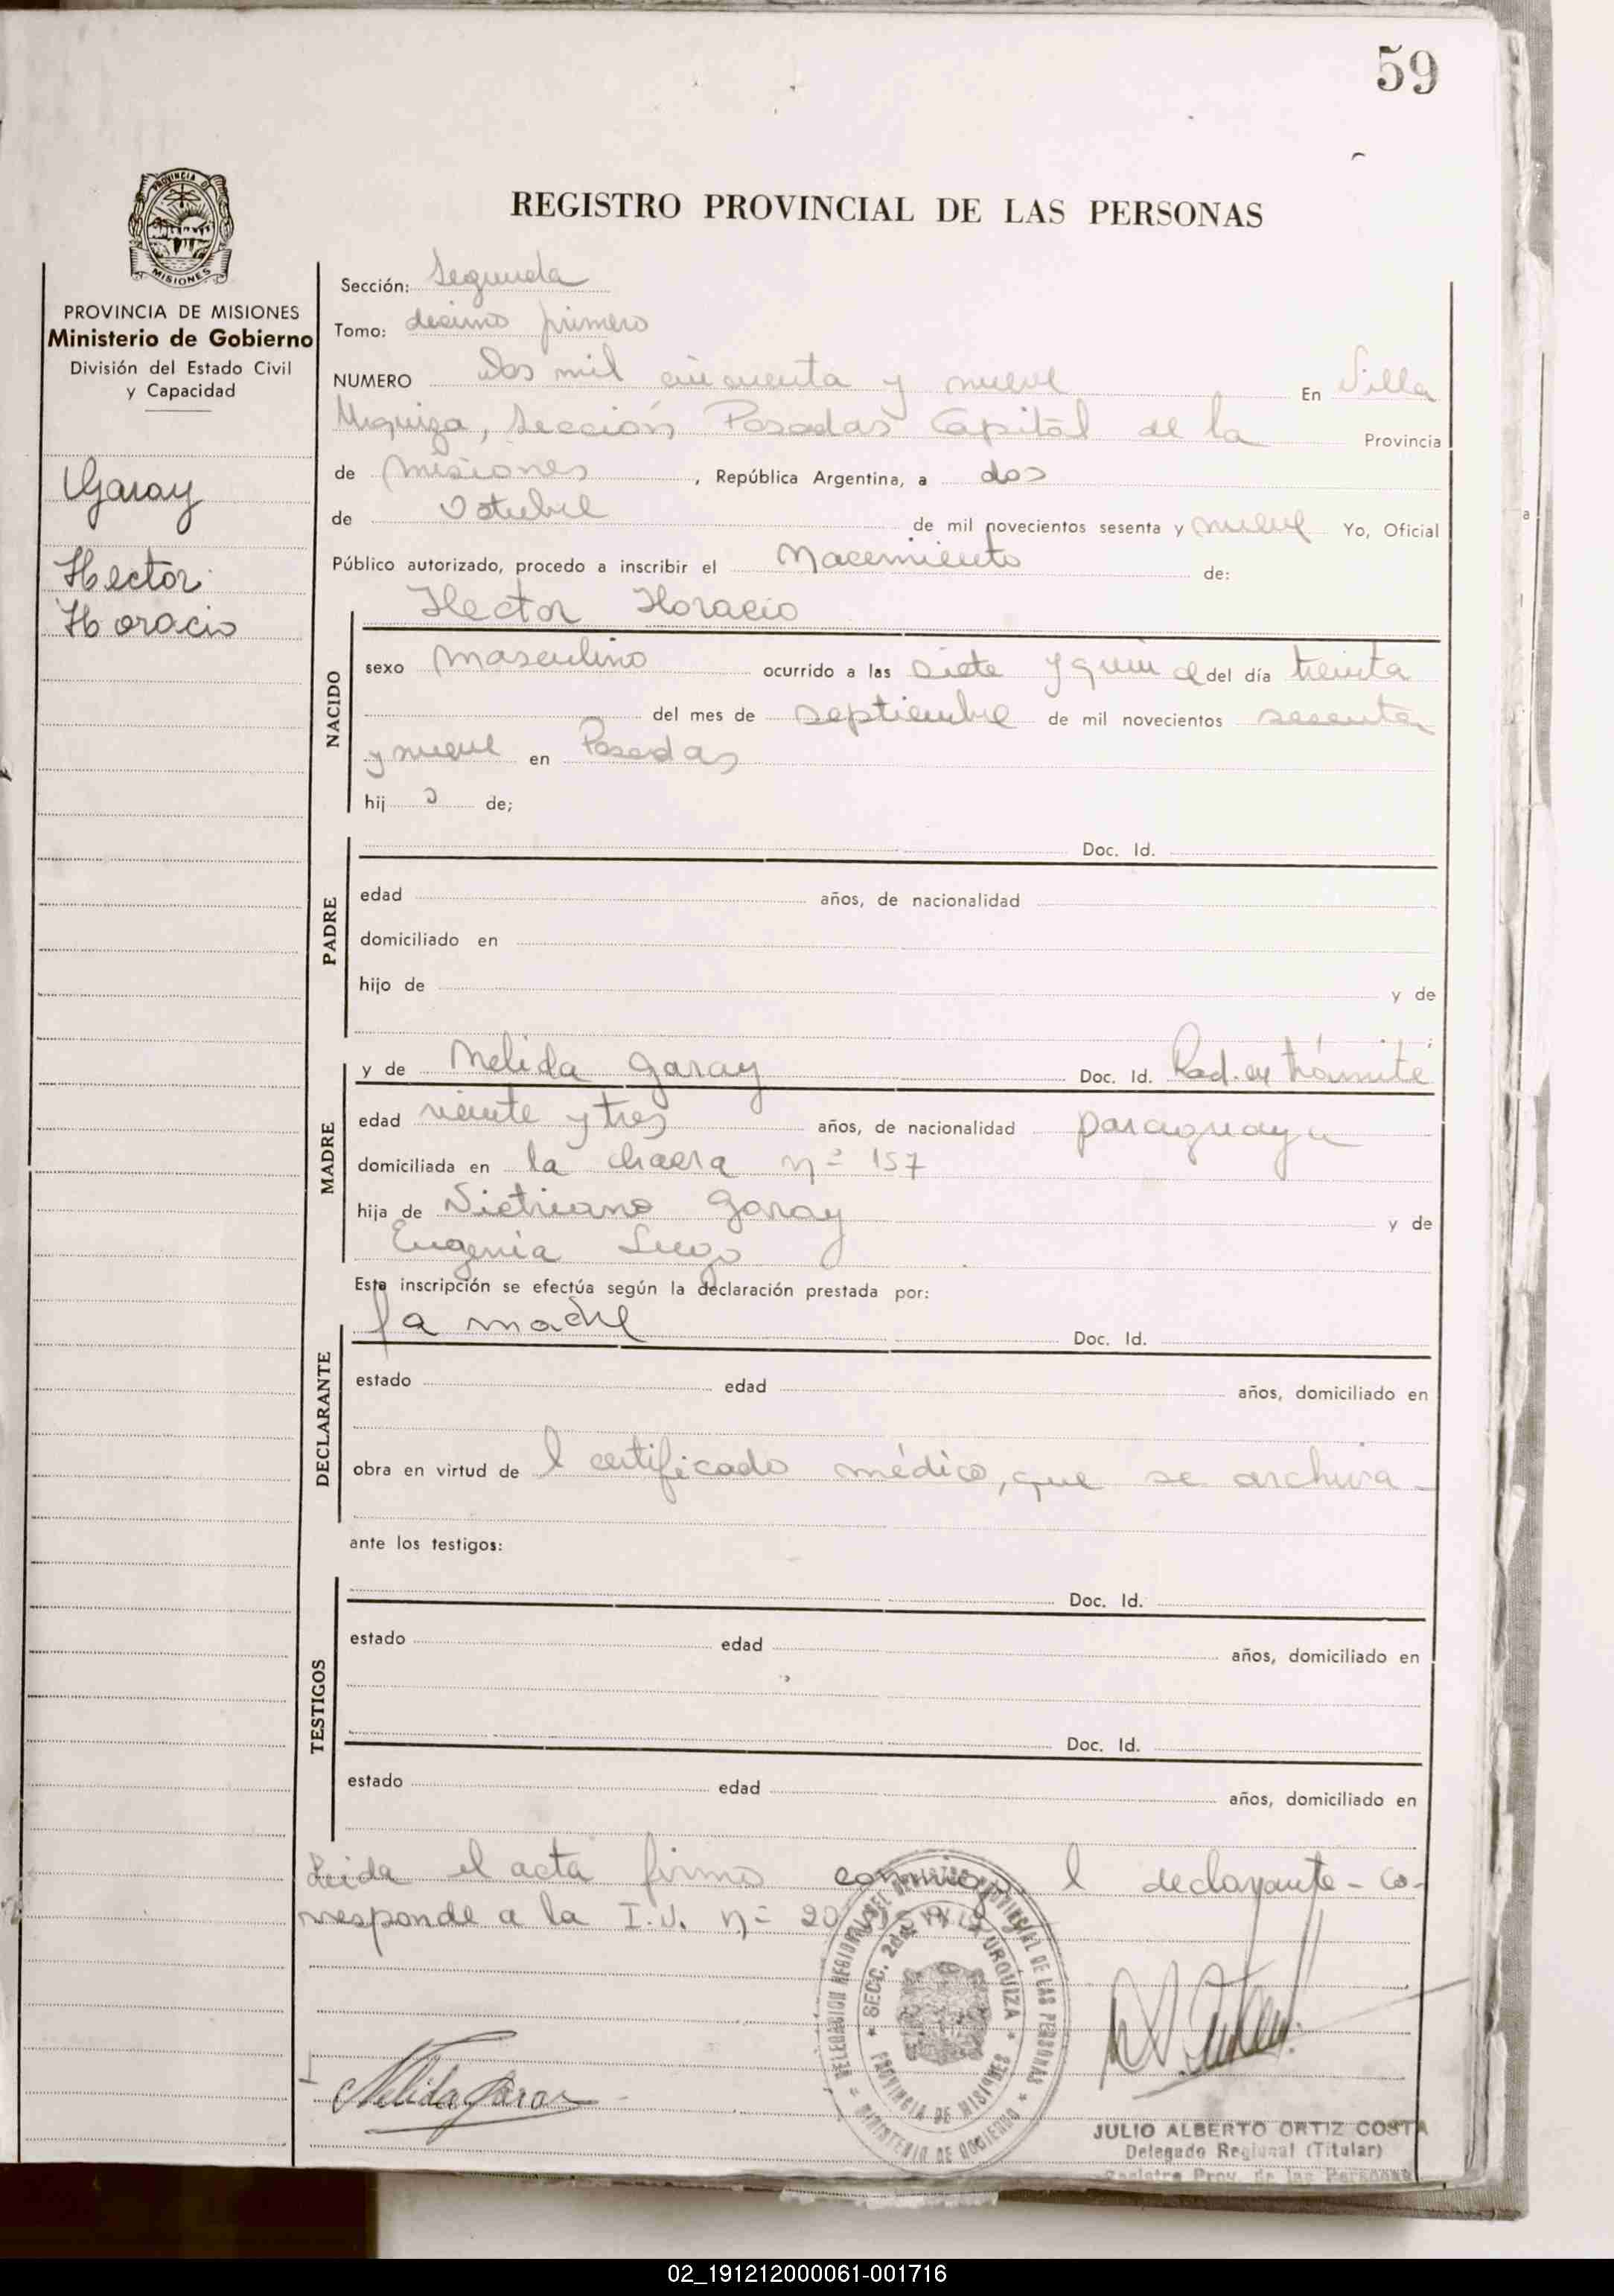 59
PROVINCIA DE
MISIONES
PROVINCIA DE MISIONES
Ministerio de Gobierno
División del Estado Civil
y Capacidad
Garay
Hector
Horacio
REGISTRO PROVINCIAL DE LAS PERSONAS
Sección: Segunda
Tomo: decimo primero
NUMERO Dos mil cincuenta y nueve En Villa
Urquiza, Sección Posadas Capital de la Provincia
de Misiones, República Argentina, a dos
de Octubre de mil novecientos sesenta y nueve Yo, Oficial
Público autorizado, procedo a inscribir el Nacimiento de:
Hector Horacio
NACIDO
sexo masculino ocurrido a las siete y quince del día treinta
del mes de septiembre de mil novecientos sesenta
y nueve en Posadas
hijo de;
PADRE
Doc. Id.
edad años, de nacionalidad
domiciliado en
hijo de y de
MADRE
y de Nelida Garay Doc. Id. Rad. en trámite
edad veinte y tres años, de nacionalidad paraguaya
domiciliada en la chacra nº 157
hija de Garay y de
Eugenia
Esta inscripción se efectúa según la declaración prestada por:
DECLARANTE
la madre Doc. Id.
estado edad años, domiciliado en
obra en virtud de l certificado médico, que se archiva-
ante los testigos:
TESTIGOS
Doc. Id.
estado edad años, domiciliado en
Doc. Id.
estado edad años, domiciliado en
Leida el acta firma conmigo l declarante - co-
rresponde a la I.V. nº 20
DELEGACION REGIONAL DEL REGISTRO PROVINCIAL DE LAS PERSONAS
SECC. 2da. VILLA URQUIZA
PROVINCIA DE MISIONES
MINISTERIO DE GOBIERNO
Nelida Garay
JULIO ALBERTO ORTIZ COSTA
Delegado Regional (Titular)
Registro Prov. de las Personas
02_191212000061-001716